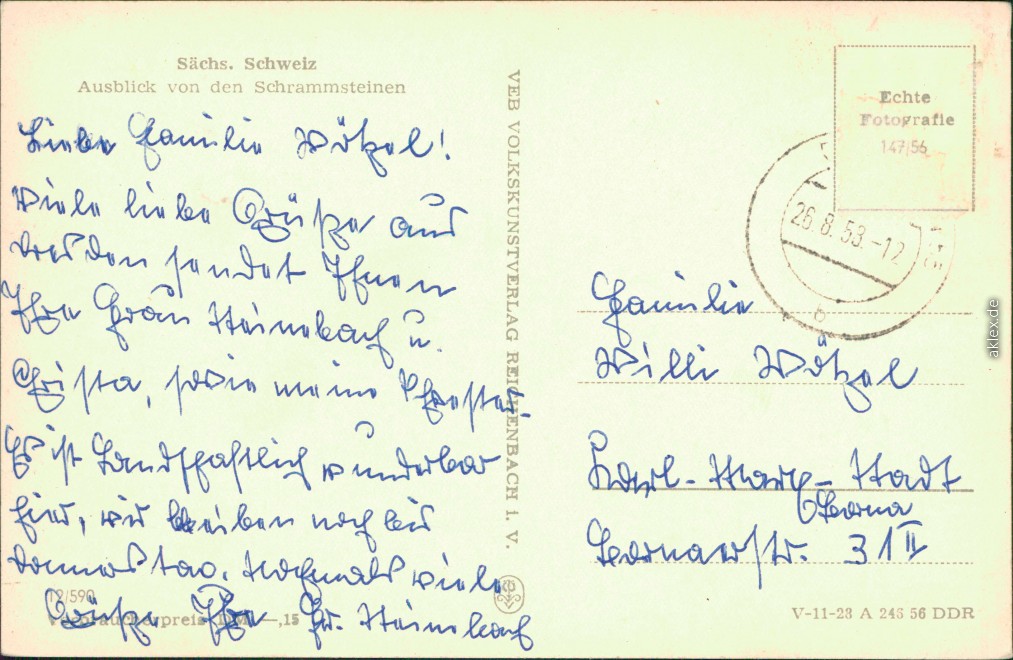 Sächs. Schweiz
Ausblick von den Schrammsteinen
Liebe Familie Wötzel!
Viele liebe Grüße aus
Dresden sendet Ihnen
Ihre Frau Steinebach u.
Christa, sowie meine Schwester.
Es ist Landschaftlich wunderbar
hier, wir bleiben noch bis
Donnerstag. Nochmals viele
Grüße Ihre Fr. Steinebach
12/590
Verbraucherpreis DM —,15
VEB VOLKSKUNSTVERLAG REICHENBACH i. V.
Echte
Fotografie
147/56
26.8.58.-12
b
Familie
Willi Wötzel
Karl-Marx-Stadt
Borna
Bornaerstr. 31 II
V-11-28 A 243 56 DDR
aklex.de